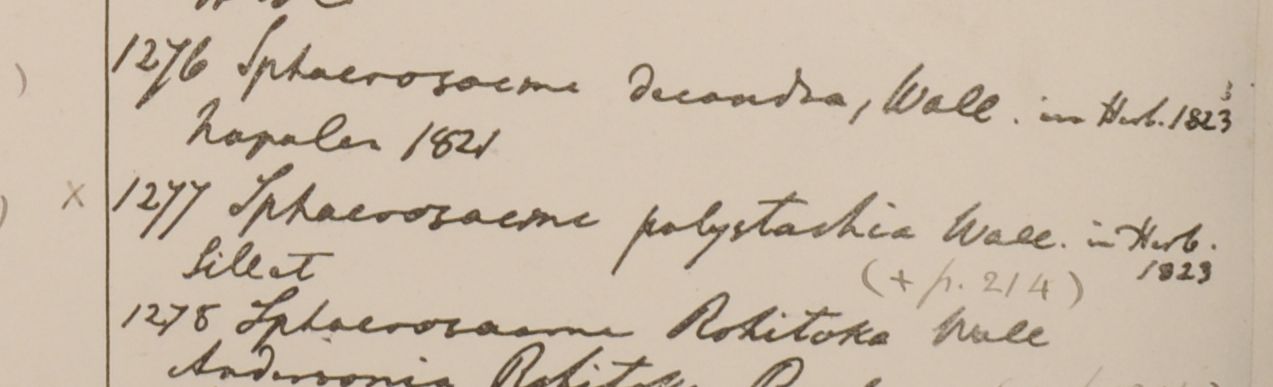 1276 Sphaerosacme decandra, Wall. in Herb. 1823
Napalea 1821
x 1277 Sphaerosacme polystachia Wall. in Herb.
Sillet 1823
(+ p. 214)
1278 Sphaerosacme Rohitoka Wall
Andersonia Rohitoka